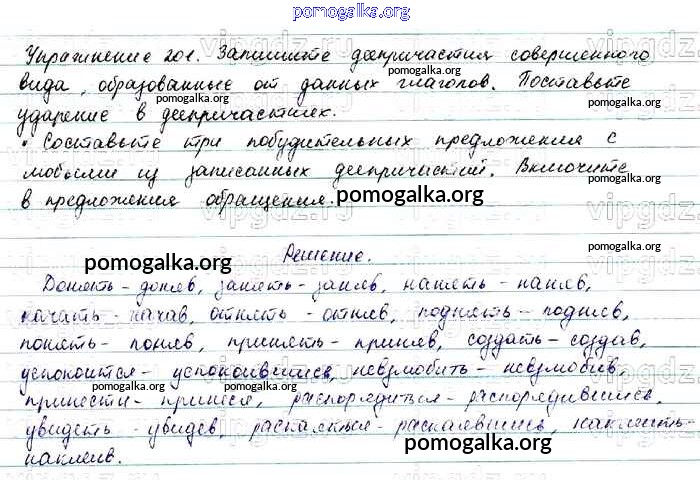 pomogalka.org
Упражнение 201. Запишите деепричастия совершенного
вида, образованные от данных глаголов. Поставьте
pomogalka.org pomogalka.org
ударение в деепричастиях.
• Составьте три побудительных предложения с
любыми из записанных деепричастий. Включите
pomogalka.org
в предложения обращения. pomogalka.org
vipgdz.ru
Решение.
pomogalka.org pomogalka.org
Донять - доняв, занять - заняв, нанять - наняв,
начать - начав, отнять - отняв, поднять - подняв,
pomogalka.org
понять - поняв, принять - приняв, создать - создав,
успокоится - успокоившись, невзлюбить - невзлюбив,
pomogalka.org pomogalka.org
принести - принеся, распорядиться - распорядившись,
увидеть - увидев, раскаяться - раскаявшись, наклеить-
pomogalka.org
наклеив.